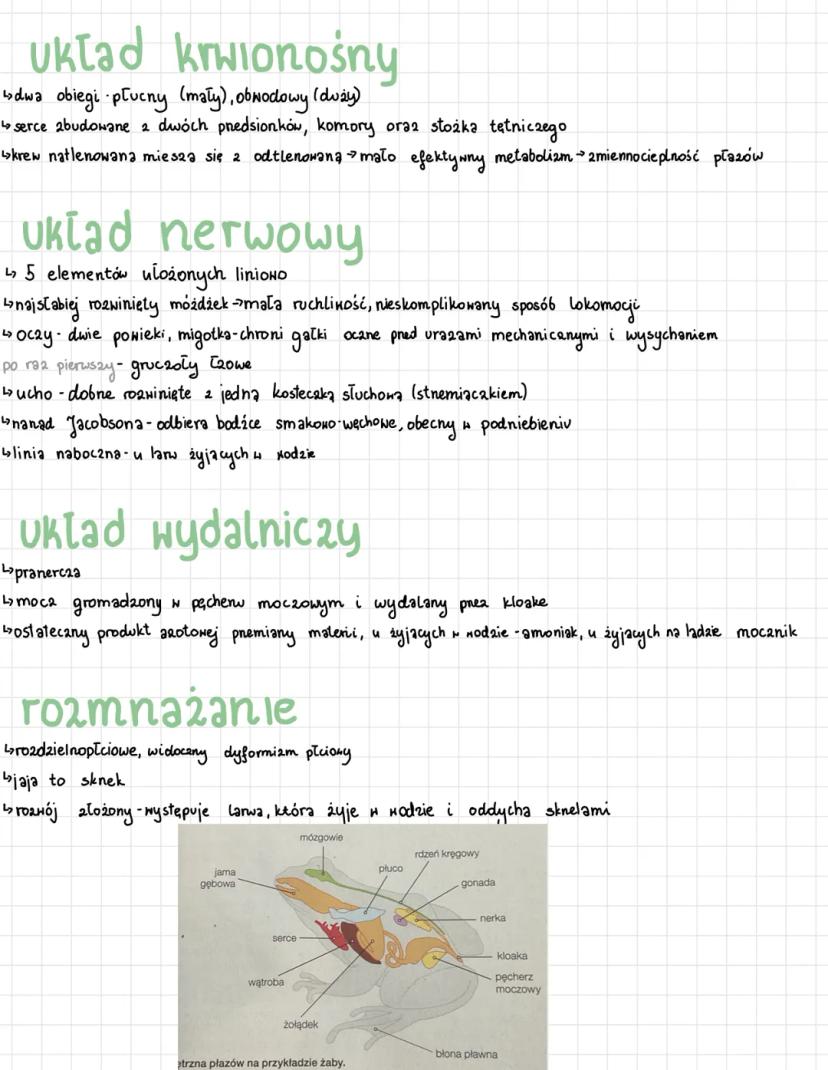 układ krwionośny
↳dwa obiegi - płucny (mały), obwodowy (duży)
↳serce zbudowane z dwóch przedsionków, komory oraz stożka tętniczego
↳krew natlenowana miesza się z odtlenowaną → mało efektywny metabolizm → zmiennocieplność płazów
układ nerwowy
↳ 5 elementów ułożonych liniowo
↳najsłabiej rozwinięty móżdżek → mała ruchliwość, nieskomplikowany sposób lokomocji
↳ oczy - dwie powieki, migotka - chroni gałki oczne przed urazami mechanicznymi i wysychaniem
po raz pierwszy - gruczoły łzowe
↳ ucho - dobrze rozwinięte z jedną kosteczką słuchową (strzemiączkiem)
↳narząd Jacobsona - odbiera bodźce smakowo-węchowe, obecny w podniebieniu
↳linia naboczna - u larw żyjących w wodzie
układ wydalniczy
↳pranercza
↳mocz gromadzony w pęcherzu moczowym i wydalany przez kloakę
↳ostateczny produkt azotowej przemiany materii, u żyjących w wodzie - amoniak, u żyjących na lądzie mocznik
rozmnażanie
↳rozdzielnopłciowe, widoczny dyformizm płciowy
↳jaja to skrzek
↳rozwój złożony - występuje larwa, która żyje w wodzie i oddycha skrzelami
mózgowie
rdzeń kręgowy
jama
gębowa
płuco
gonada
nerka
serce
kloaka
wątroba
pęcherz
moczowy
żołądek
błona pławna
etrzna płazów na przykładzie żaby.